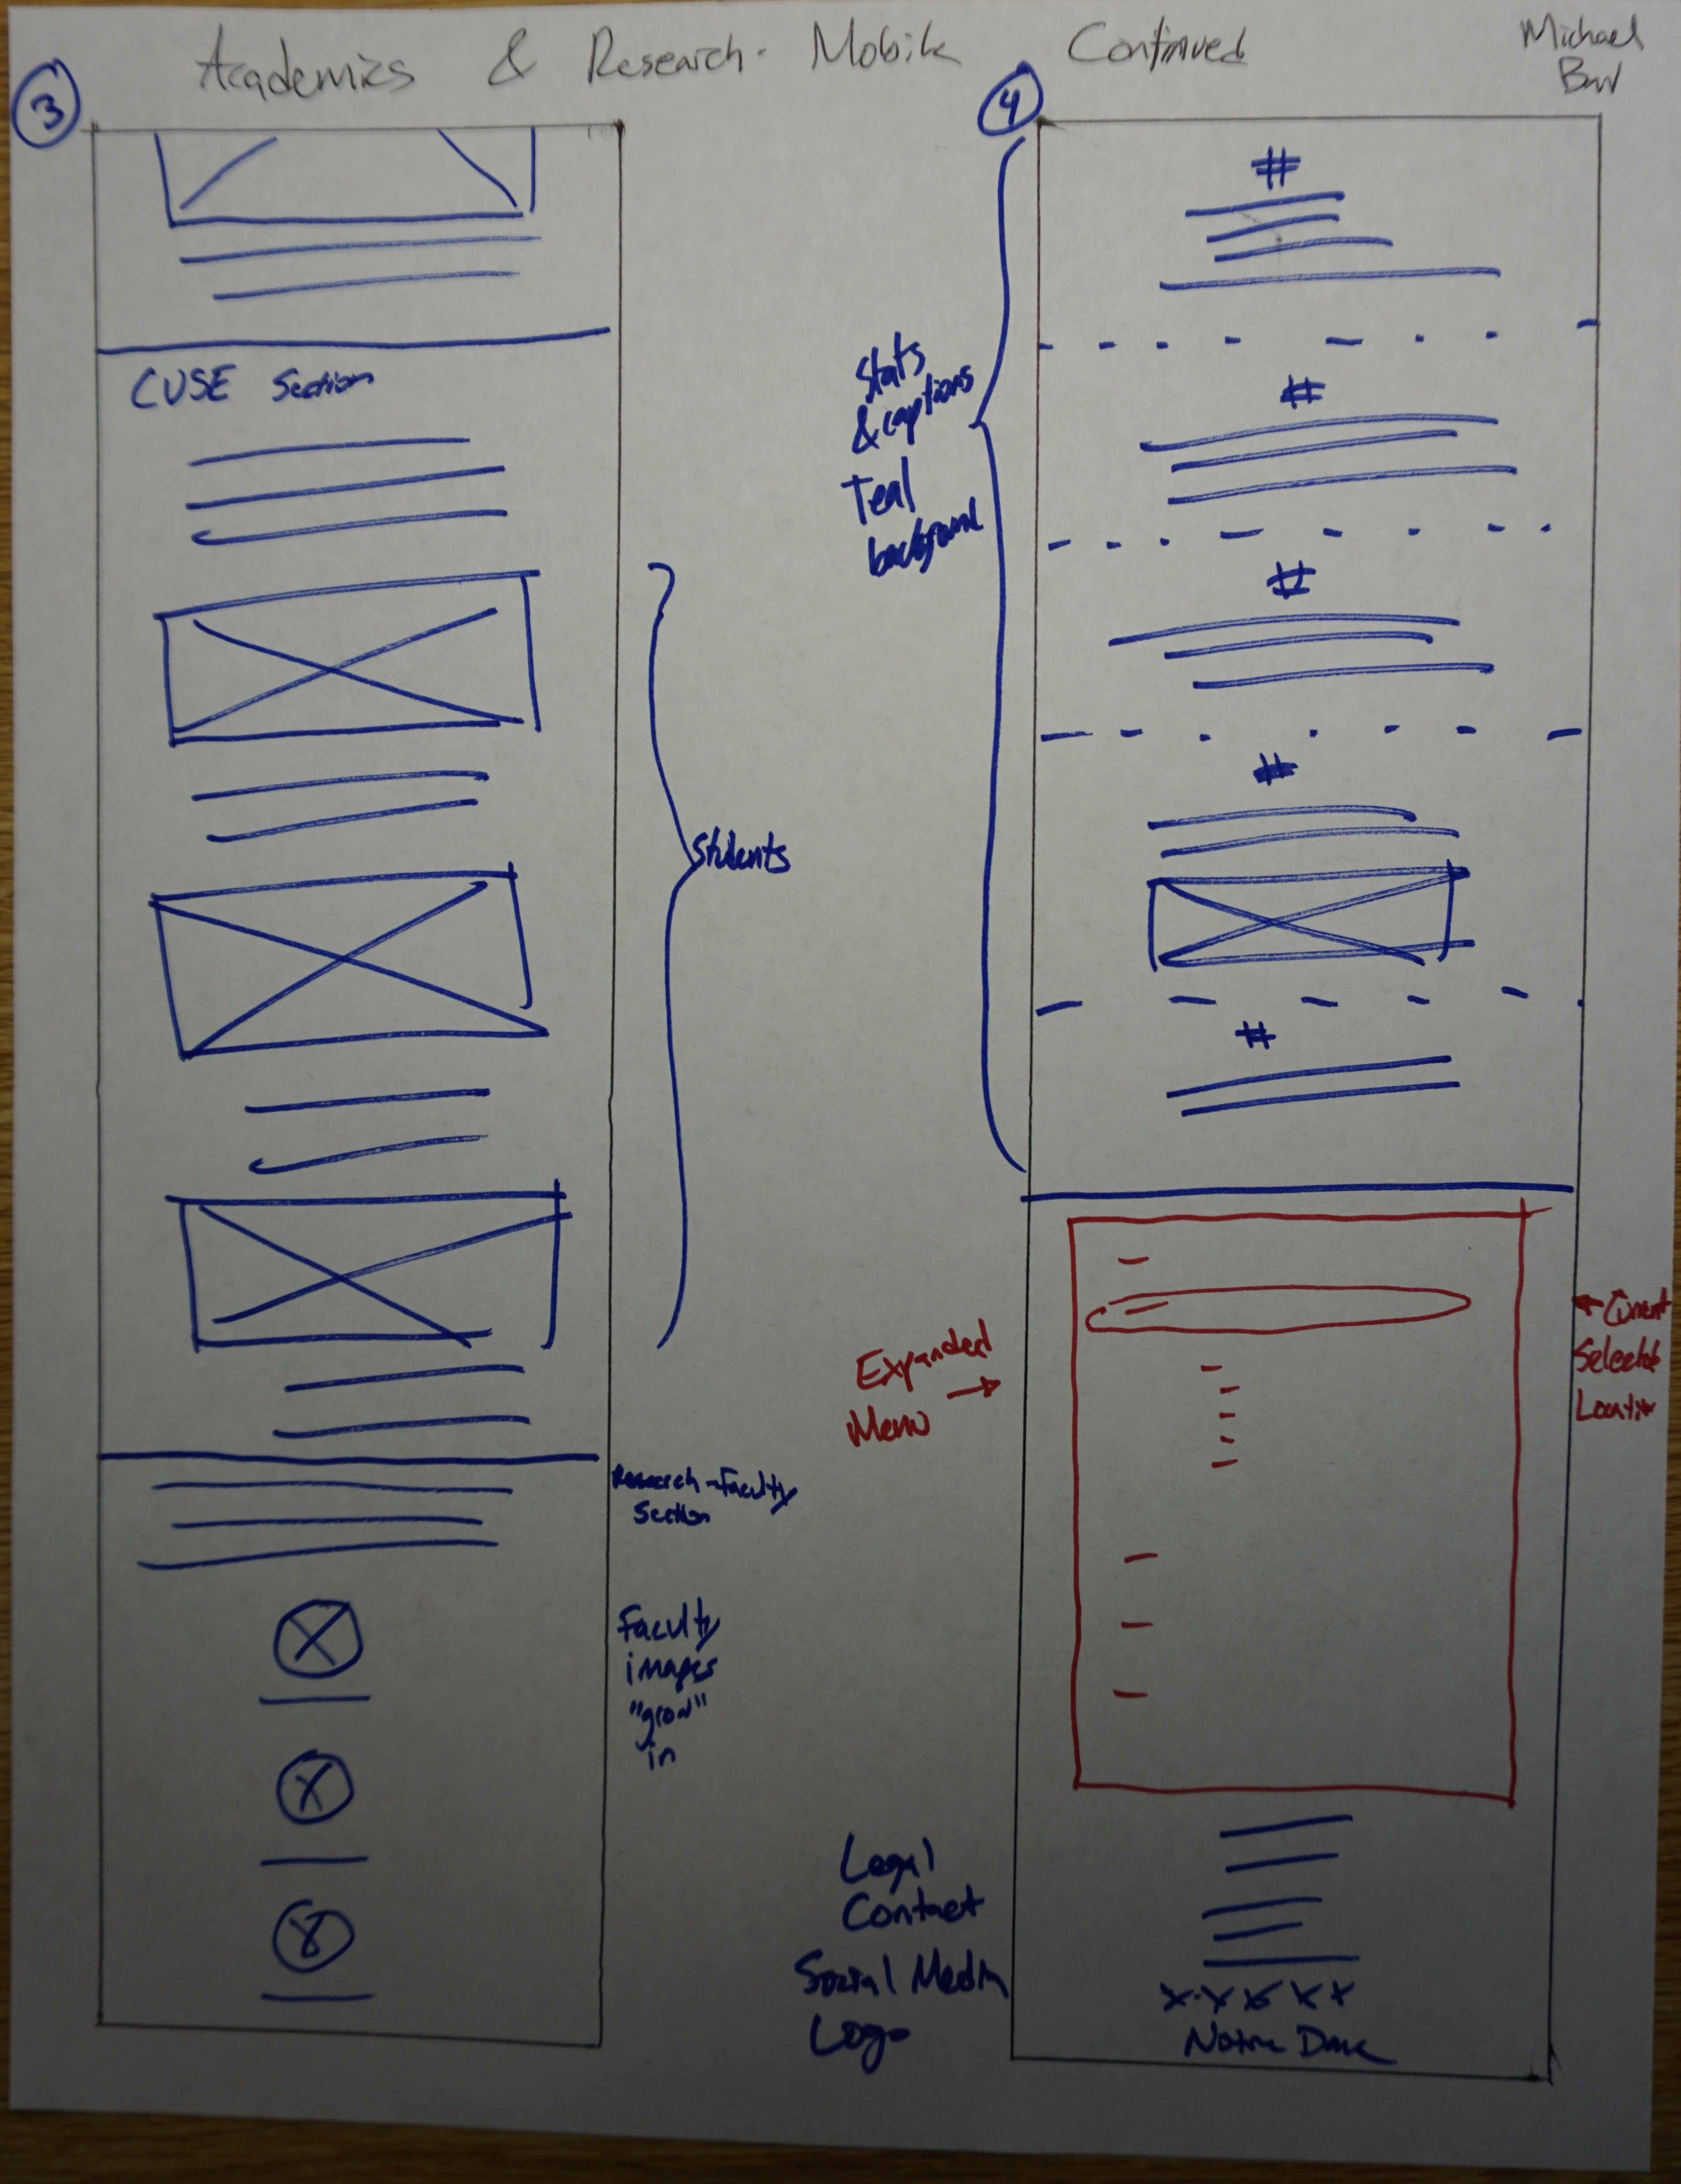 Academics & Research - Mobile Continued
Michael
3
4
CUSE Section
Students
Research - Faculty
Section
Faculty
images
"grow"
in
#
Stats
& captions
Teal
background
#
#
#
#
Expanded
Menu
Current
Selected
Location
Legal
Contact
Social Media
Logo
x x x x x
Notre Dame